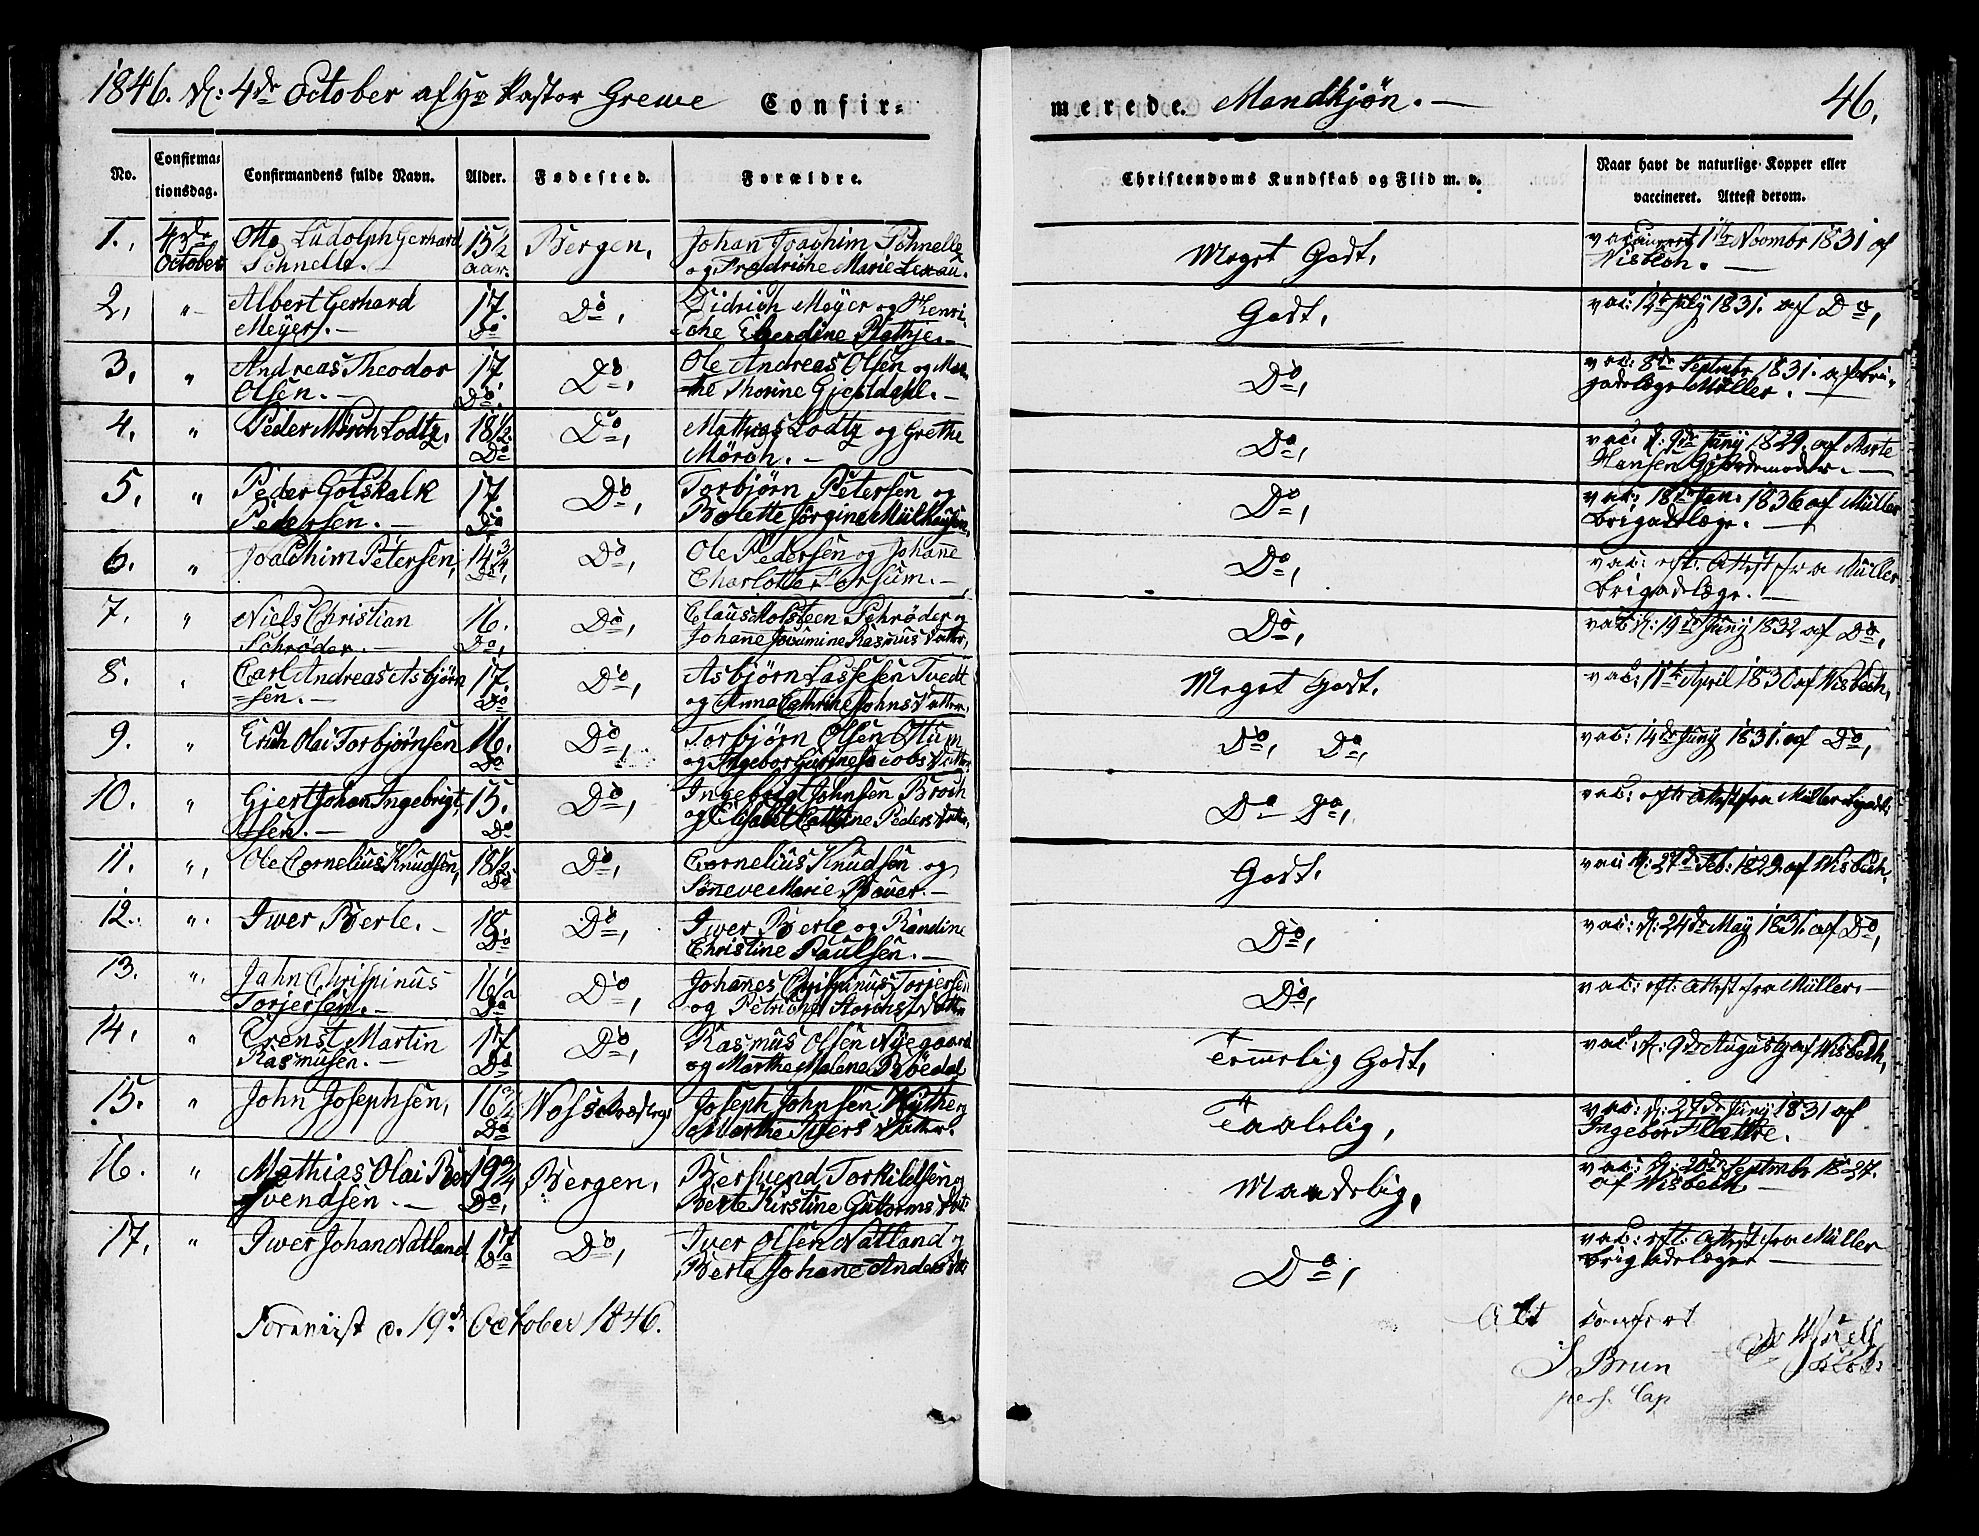 1846. d: 4de October af Hr Pastor Grewe Confir-
No. Confirma-tionsdag. Confirmandens fulde Navn. Alder. Fødested. Forældre.
1., 4de October Otto Ludolph Gerhard Schnelle. 15½ aar. Bergen, Johan Joachim Schnelle og Fredriche Marie Lexau.
2, " Albert Gerhard Meyer. 17. Do Do, Didrich Meyer og Henri-che Rathje
3, " Andreas Theodor Olsen. 17, Do. Do, Ole Andreas Olsen og Mar-the Thorine Gjeldahl.
4. " Peder Mörch Lodtz, 18½. Do Do, Mathias Lodtz og Grethe Mörch.
5, " Peder Gotskalk Pedersen. 17 Do Do, Torbjørn Petersen og Bolette Jörgine Mülhausen,
6. " Joachim Petersen, 14¾ Do, Do, Ole Pedersen og Johane Charlotte Forsum.
7. " Niels Christian Schrøder. 16. Do, Do, Claus Holsteen Schrøder og Johane Rasmus Datter,
8. " Carl Andreas Asbjörn-sen. 17. Do Do, Asbjörn Lassesen Tvedt og Anna Cathrine Johns Datter,
9. " Erich Olai Torbjørnsen 16. Do Do, Torbjörn Olsen og Ingebor Jacobs Datter
10. " Gjert Johan Ingebrigt-sen. 15. Do Do, Ingebrigt Johnsen Broch og Elisabet Cathrine Peders Datter,
11. " Ole Cornelius Knudsen, 18½ Do Do, Cornelius Knudsen og Söneve Marie
12. " Iwer Berle. 18 Do Do, Iwer Berle og Randine Christine Paulsen.
13. " Jahn Chrispinus Torjersen. 16½ Do Do, Johanes Chrispinus Torjersen og Datter
14. " Erenst Martin Rasmusen. 17 Do Do, Rasmus Olsen Nyegaard og Marthe Malene
15. " John Josephsen, 16½ Do Joseph Johnsen og Marthe Ivers Datter.
16. " Mathias Olai Ber-svendsen. 19¾ Do, Bergen, Bersvend Torkildsen og Berte Kirstine Guttorms
17. " Iwer Johan Natland 17 Do Do, Iver Olsen Natland og Berte Johane Anders
October 1846.
merede. Mandkjön. 46.
Christendoms Kundskab og Flid m. v. Naar havt de naturlige Kopper eller vaccineret. Attest derom.
Meget Godt, 1831 af Wisbech.
Godt, vac: July 1831. af Do,
Do, vac: 8de Septmbr 1831. af Bri-gadelæge Müller.
Do, vac: d: 9de Juny 1829. af Marte Hansen Gjordemoder.
Do, vac: 18de Jan. 1836 af Müller brigadelæge.
Do, vac: eft: Attest fra Müller brigadelæge.
Do, vac: d: 19de Juny 1832 af Do,
Meget Godt, vac: 11te April 1830 af Wisbech,
Do, Do, vac: 14de Juny 1831. af Do,
Do Do, vac: eft: Attest fra Müller
Godt. vac: d: 27de Feb: 1829. af Wisbech,
Do, vac: d: 24de May 1831. af Do,
Do, vac: eft: Attest fra Müller.
Temmelig Godt, vac: d: 9de August af Wisbech,
Taalelig, vac: d: 27de Juny 1831 af Ingebor
Maadelig, vac: d: 20de Septmbr 1827. af Wisbech
Do, vac: eft: Attest fra Müller brigadelæge
J Brun
pers. Cap